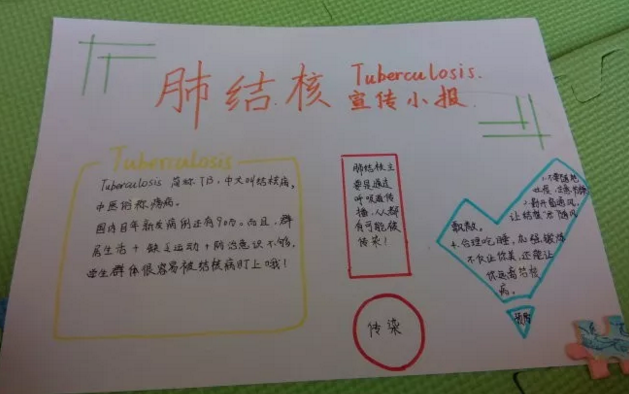 肺结核 Tuberculosis.
宣传小报.
Tuberculosis
Tuberculosis 简称TB,中文叫结核病,
中医的称痨病。
国内目年新发病例还有90万。而且,群
居生活+缺乏运动+防治意识不够,
学生群体很容易被结核病盯上哦!
肺结核主
要是通过
呼吸道传
播,人人都
有可能被
传染!
传染
2.勤开窗通风,
让结核杆菌随风
飘散。
4.合理吃睡,加强锻炼
不仅让你美,还能让
你远离结核
病。
预防